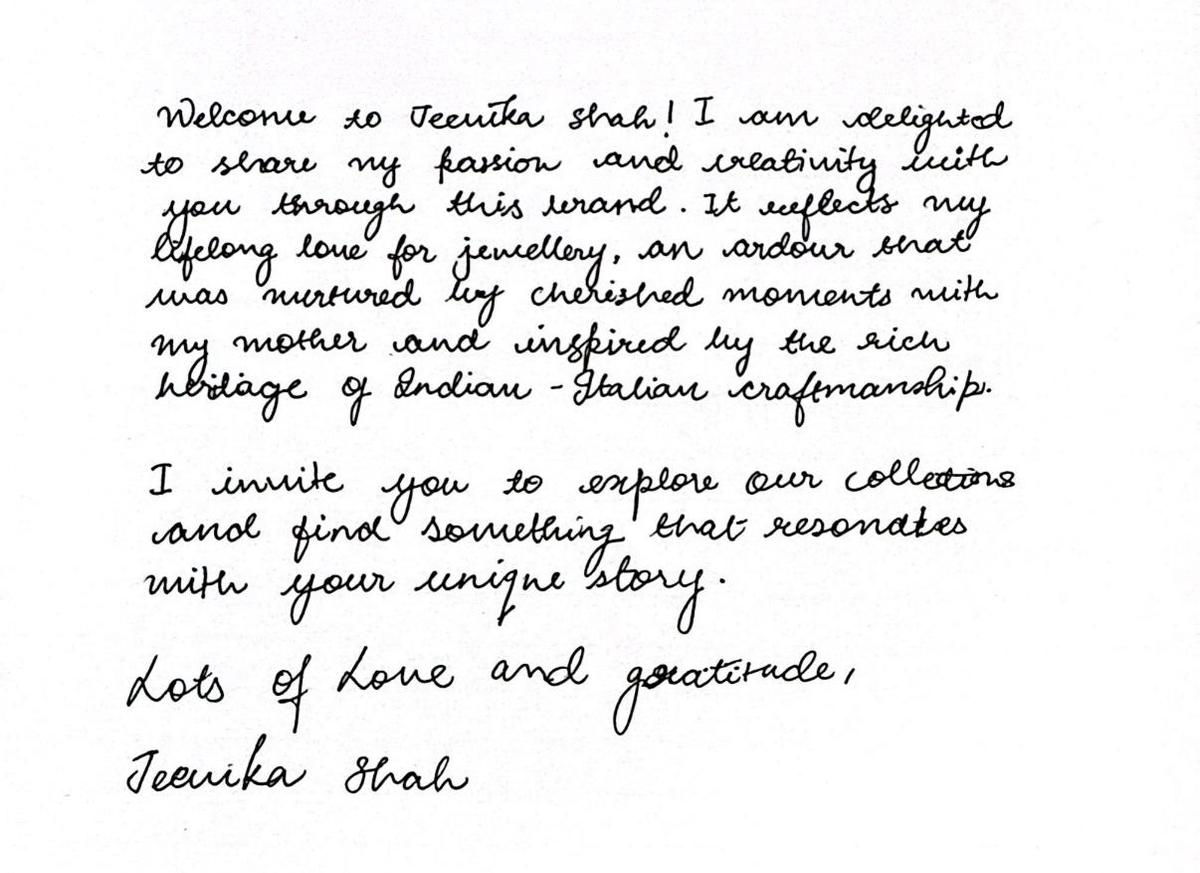 Welcome to Jeenika Shah! I am delighted
to share my passion and creativity with
you through this brand. It reflects my
lifelong love for jewellery, an ardour that
was nurtured by cherished moments with
my mother and inspired by the rich
heritage of Indian - Italian craftmanship.
I invite you to explore our collections
and find something that resonates
with your unique story.
Lots of Love and gratitude,
Jeenika Shah